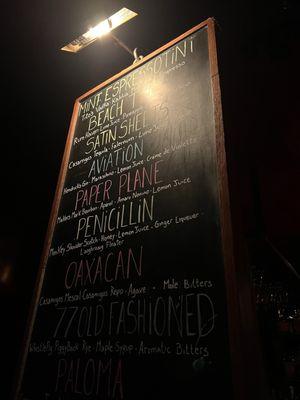 MINI ESPRESSOTINI
BEACH
Rum
SATIN SHEETS
Casamigos Tequila - Falernum - Lime
AVIATION
Hendricks Gin - Maraschino - Lemon Juice - Creme de Violette
PAPER PLANE
Makers Mark Bourbon - Aperol - Amaro Nonino - Lemon Juice
PENICILLIN
Monkey Shoulder Scotch - Honey - Lemon Juice - Ginger Liqueur -
Laphroaig Floater
OAXACAN
Casamigos Mescal Casamigos Repo - Agave - Mole Bitters
77 OLD FASHIONED
WhistlePig PiggyBack Rye - Maple Syrup - Aromatic Bitters
PALOMA